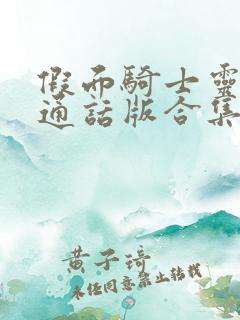 假面騎士靈
通話版合集
黃子琦
未經同意禁止轉載